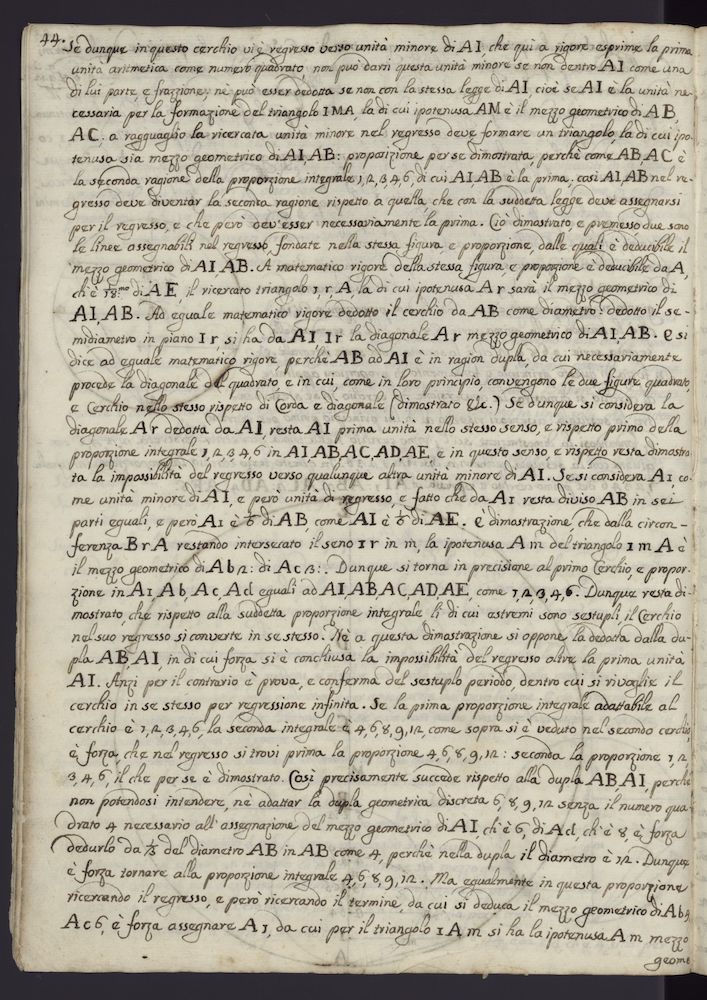 44.
Se dunque in questo cerchio vi è regresso verso unità minore di AI, che qui a rigore esprime la prima
unità aritmetica come numero quadrato, non può darsi questa unità minore se non dentro AI come una
di lui parte, e frazzione; nè può esser dedotta se non con la stessa legge di AI cioè se AI è la unità ne-
cessaria per la formazione del triangolo IMA, la di cui ipotenusa AM è il mezzo geometrico di AB,
AC, a ragguaglio la ricercata unità minore nel regresso deve formare un triangolo, la di cui ipo-
tenusa sia mezzo geometrico di AI, AB: proposizione per se dimostrata, perchè come AB, AC è
la seconda ragione della proporzione integrale 1, 2, 3, 4, 6 di cui AI, AB è la prima, così AI, AB nel re-
gresso deve diventar la seconda ragione rispetto a quella che con la suddetta legge deve assegnarsi
per il regresso, e che però dev'esser necessariamente la prima. Ciò dimostrato, e premesso due sono
le linee assegnabili nel regresso, fondate nella stessa figura e proporzione, dalle quali è deducibile il
mezzo geometrico di AI, AB. A matematico rigore della stessa figura, e proporzione è deducibile da A,
ch'è 1/18.mo di AE, il ricercato triangolo 1, r, A, la di cui ipotenusa Ar sarà il mezzo geometrico di
AI, AB. Ad eguale matematico vigore dedotto il cerchio da AB come diametro: dedotto il se-
midiametro in piano Ir, si ha da AI, Ir la diagonale Ar mezzo geometrico di AI, AB. E si
dice ad eguale matematico rigore, perchè AB ad AI è in ragion dupla, da cui necessariamente
procede la diagonale del quadrato, e in cui, come in loro principio, convengono le due figure quadrato,
e Cerchio nello stesso rispetto di Corda e diagonale (dimostrato &c.) Se dunque si considera la
diagonale Ar dedotta da AI, resta AI prima unità nello stesso senso, e rispetto primo della
proporzione integrale 1, 2, 3, 4, 6 in AI AB, AC, AD, AE, e in questo senso, e rispetto resta dimostra
ta la impossibilità del regresso verso qualunque altra unità minore di AI. Se si considera A1, co-
me unità minore di AI, e però unità di regresso, e fatto che da A1 resta diviso AB in sei
parti eguali, e però A1 è 1/6 di AB, come AI è 1/6 di AE. è dimostrazione, che dalla circon-
ferenza BrA restando intersecato il seno 1r in m, la ipotenusa Am del triangolo 1mA è
il mezzo geometrico di Ab 2: di Ac 3:. Dunque si torna in precisione al primo Cerchio, e propor-
zione in A1, Ab, Ac, Ad eguali ad AI, AB, AC, AD, AE, come 1, 2, 3, 4, 6. Dunque resta di-
mostrato, che rispetto alla suddetta proporzione integrale li di cui estremi sono sestupli, il Cerchio
nel suo regresso si converte in se stesso. Nè a questa dimostrazione si oppone la dedotta dalla du-
pla AB, AI, in di cui forza si è conchiusa la impossibilità del regresso oltre la prima unità
AI. Anzi per il contrario è prova, e conferma del sestuplo periodo, dentro cui si rivoglie il
cerchio in se stesso per regressione infinita. Se la prima proporzione integrale adattabile al
cerchio è 1, 2, 3, 4, 6, la seconda integrale è 4, 6, 8, 9, 12, come sopra si è veduto nel secondo cerchio,
è forza, che nel regresso si trovi prima la proporzione 4, 6, 8, 9, 12: seconda la proporzione 1, 2,
3, 4, 6, il che per se è dimostrato. Così precisamente succede rispetto alla dupla AB, AI, perchè
non potendosi intendere, nè adattar la dupla geometrica discreta 6, 8, 9, 12 senza il numero qua-
drato 4 necessario all'assegnazione del mezzo geometrico di AI ch'è 6, di Ad, ch'è 8, è forza
dedurlo da 1/3 del diametro AB in AB come 4, perchè nella dupla il diametro è 12. Dunque
è forza tornare alla proporzione integrale 4, 6, 8, 9, 12. Ma egualmente in questa proporzione
ricercando il regresso, e però ricercando il termine, da cui si deduca il mezzo geometrico di Ab 4
Ac 6, è forza assegnare A1, da cui per il triangolo 1Am si ha la ipotenusa Am mezzo
geome